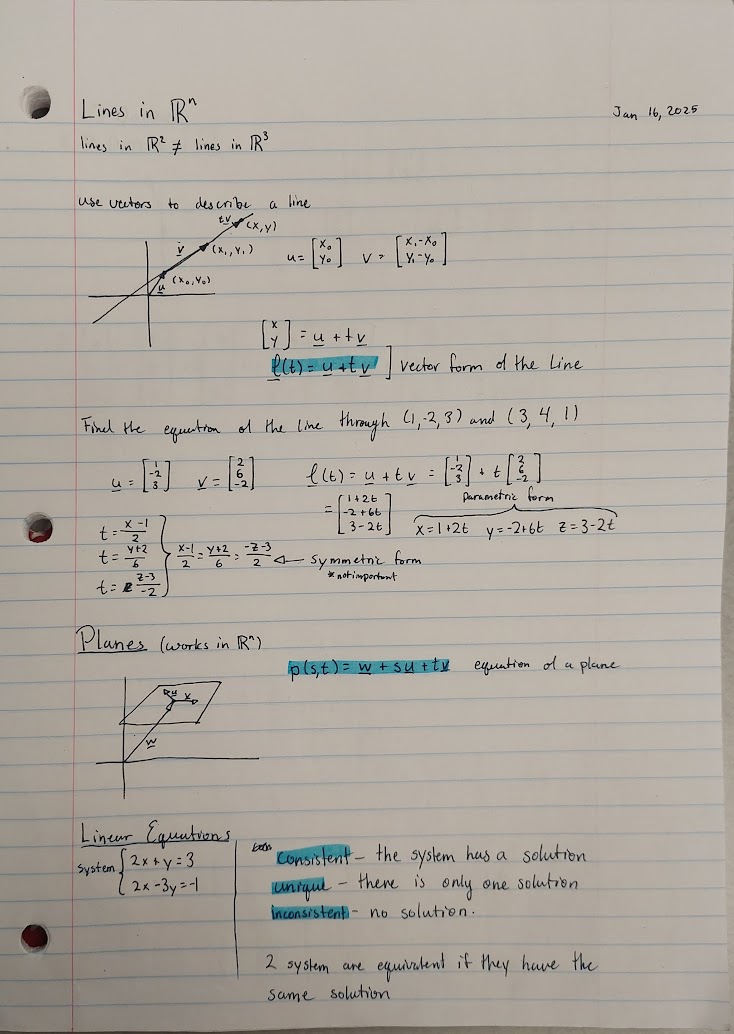 Lines in ℝⁿ
Jan 16, 2025
lines in ℝ² ≠ lines in ℝ³
use vectors to describe a line
tv (x,y)
v (x₁,y₁)
u (x₀,y₀)
u = [x₀ y₀] v = [x₁-x₀ y₁-y₀]
[x y] = u + tv
l(t) = u + tv ] vector form of the Line
Find the equation of the line through (1,-2,3) and (3,4,1)
u = [1 -2 3] v = [2 6 -2] l(t) = u + tv = [1 -2 3] + t[2 6 -2]
= [1+2t -2+6t 3-2t]
parametric form
x=1+2t y=-2+6t z=3-2t
t = x-1/2
t = y+2/6
t = z-3/-2
x-1/2 = y+2/6 = -z-3/2 ← symmetric form
*not important
Planes (works in ℝⁿ)
p(s,t) = w + su + tv equation of a plane
u
w
Linear Equations
system { 2x+y=3
2x-3y=-1
consistent - the system has a solution
unique - there is only one solution
inconsistent - no solution.
2 system are equivalent if they have the
same solution